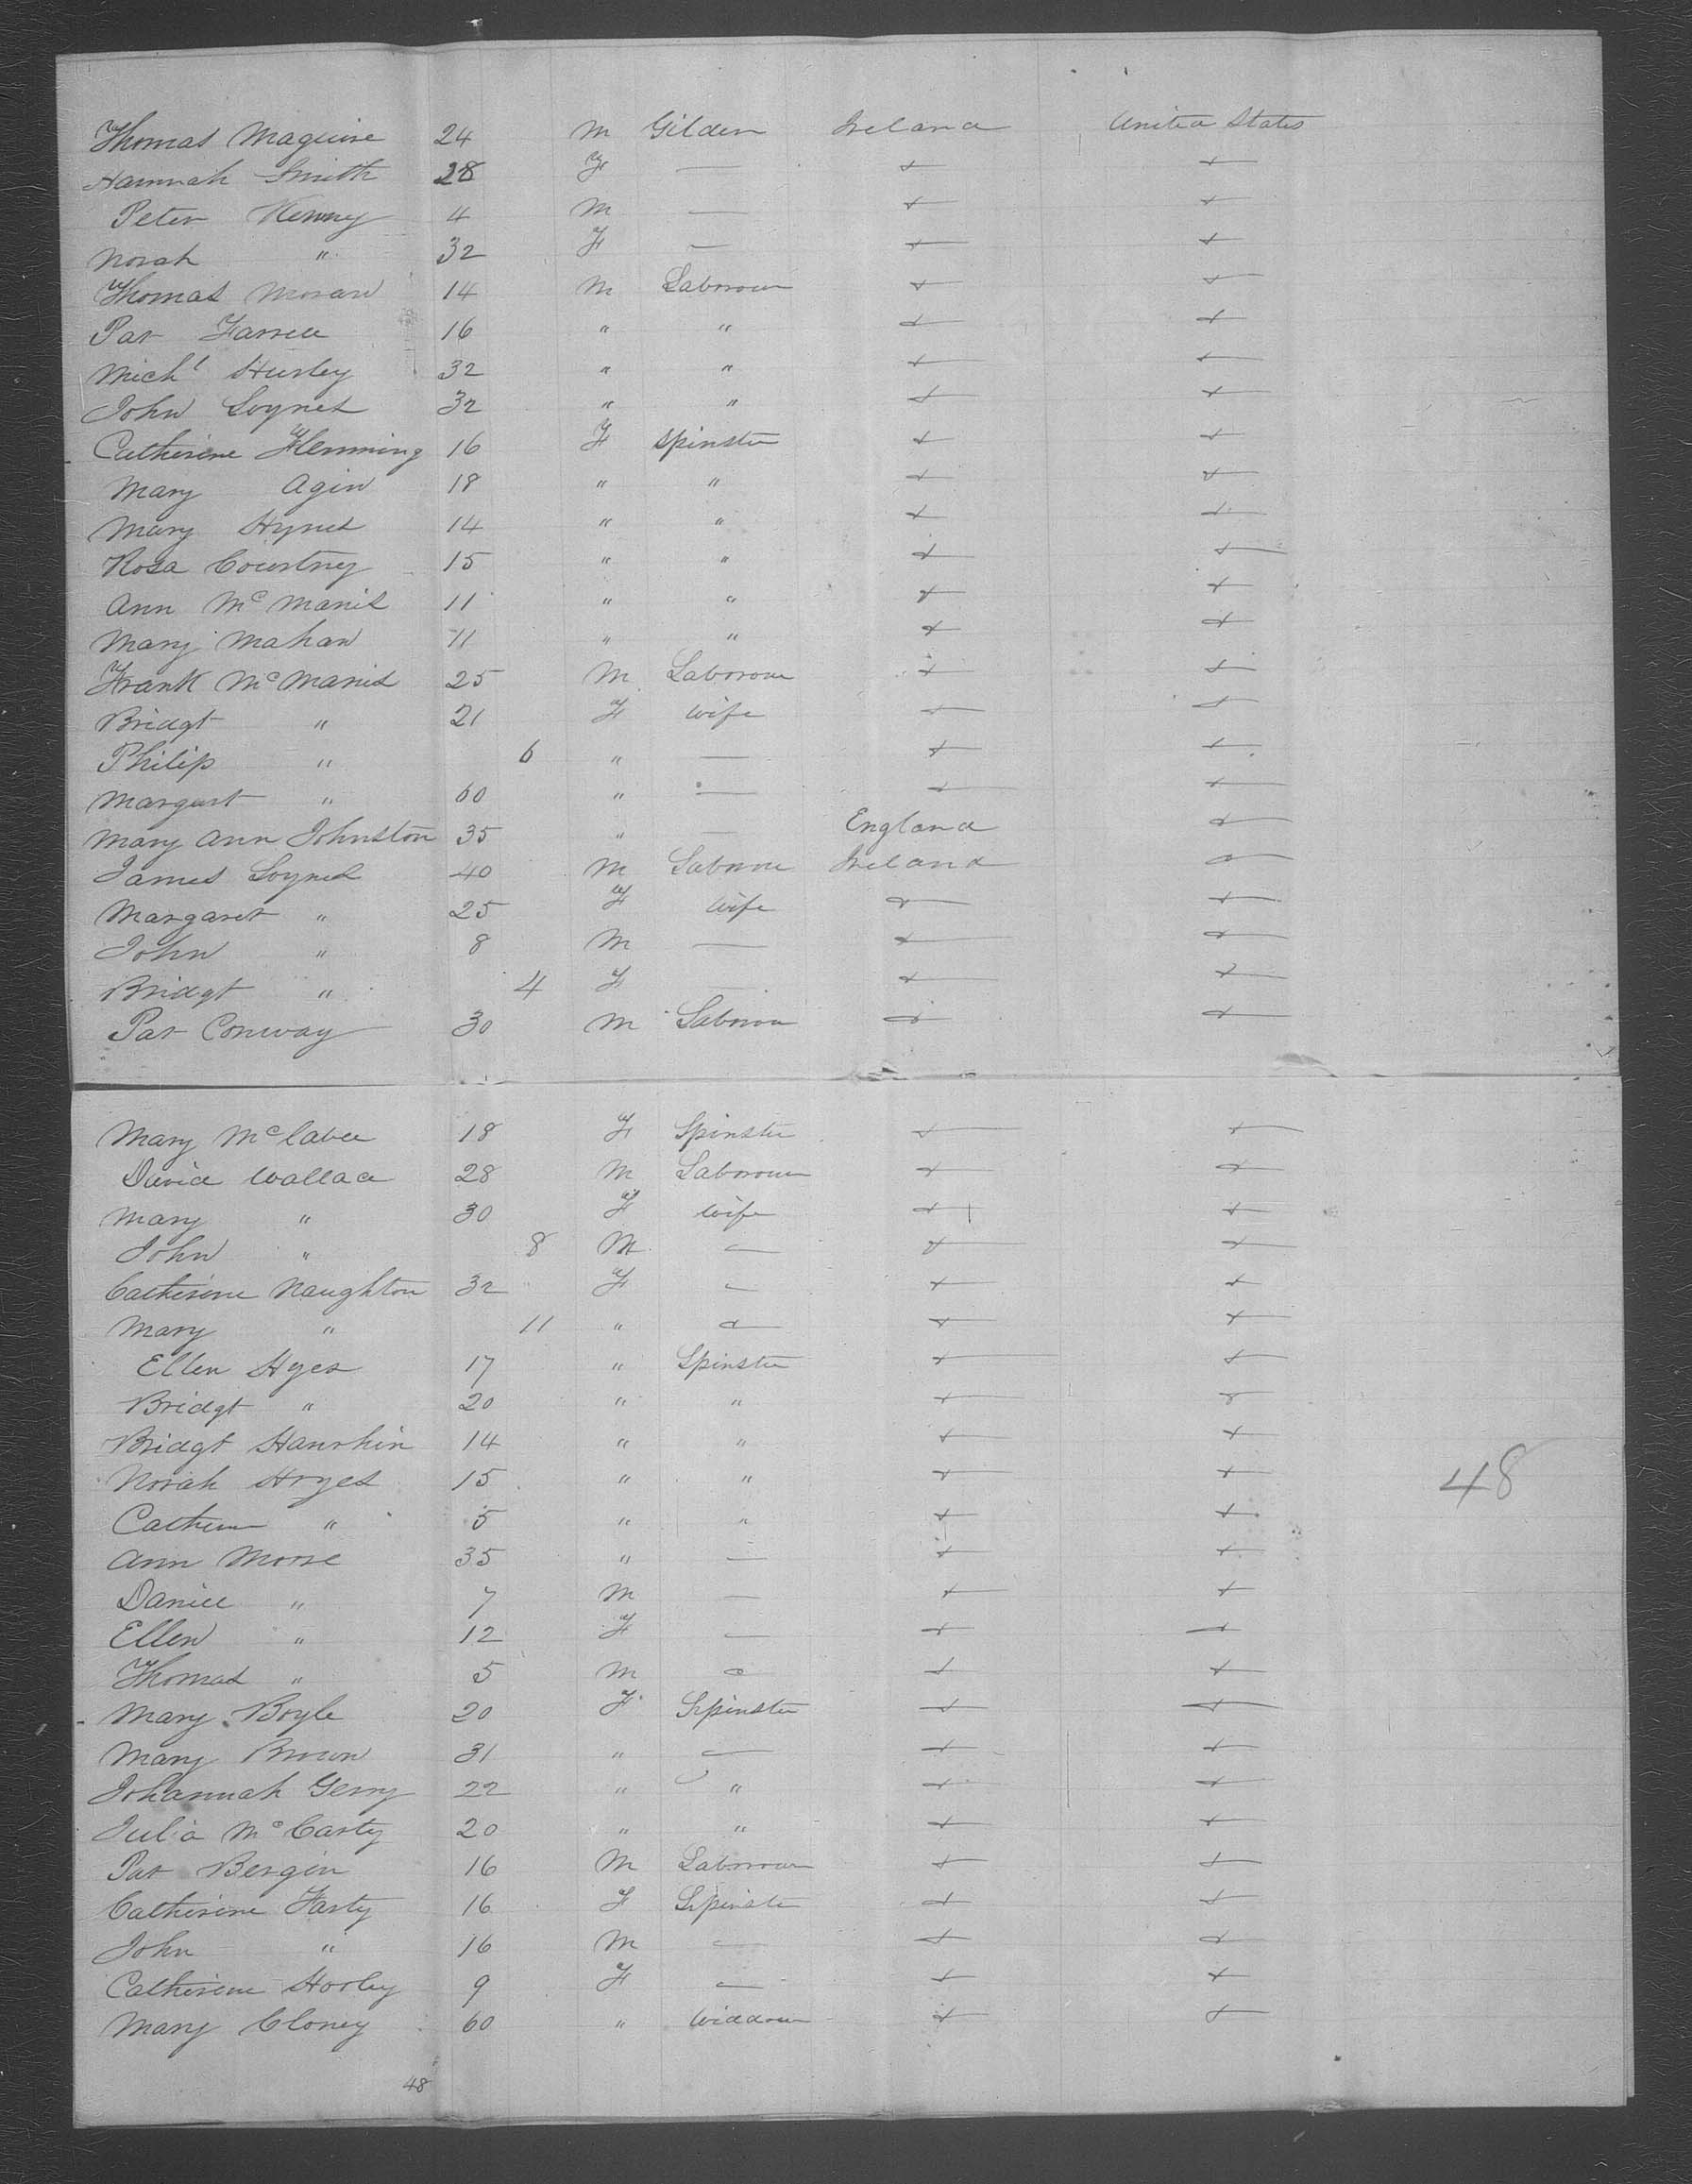 Thomas Maguire 24 M Gilder Ireland United States
Hannah Smith 28 F — + +
Peter Kenny 4 M — + +
Norah " 32 F — + +
Thomas Moran 14 M Laborour + +
Pat Farrell 16 " " + +
Michl Hurley 32 " " + +
John Loynes 32 " " + +
Catherine Flemming 16 F Spinster + +
Mary Agin 18 " " + +
Mary Hynes 14 " " + +
Rosa Courtney 15 " " + +
Ann McManis 11 " " + +
Mary Mahan 11 " " + +
Frank McManis 25 M Laborour + +
Bridgt " 21 F Wife + +
Philip " 6 " — + +
Margaret " 60 " — + +
Mary Ann Johnston 35 " — England +
James Loynes 40 M Ireland +
Margaret " 25 F Wife + +
John " 8 M — + +
Bridgt " 4 F — + +
Pat Conway 30 M + +
Mary McCabe 18 F Spinster + +
David Wallace 28 M Laborour + +
Mary " 30 F Wife + +
John " 8 M — + +
Catherine Naughton 32 F — + +
Mary " 11 " — + +
Ellen Hyes 17 " Spinster + +
Bridgt " 20 " " + +
Bridgt 14 " " + +
Norah 15 " " + + 48
" 5 " " + +
Ann Moore 35 " — + +
Daniel " 7 M — + +
Ellen " 12 F — + +
Thomas " 5 M — + +
Mary Boyle 20 F Spinster + +
Mary Brown 31 " — + +
Johannah Gerry 22 " " + +
Julia McCarty 20 " " + +
Pat Bergin 16 M Laborour + +
Catherine Farty 16 F Spinster + +
John " 16 M — + +
Catherine Horley 9 F — + +
Mary Cloney 60 " Widdow + +
48